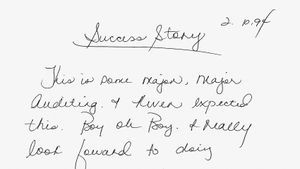 2.10.94
Success Story
This is some major, major
Auditing. I never expected
this. Boy oh Boy. I really
look foward to doing